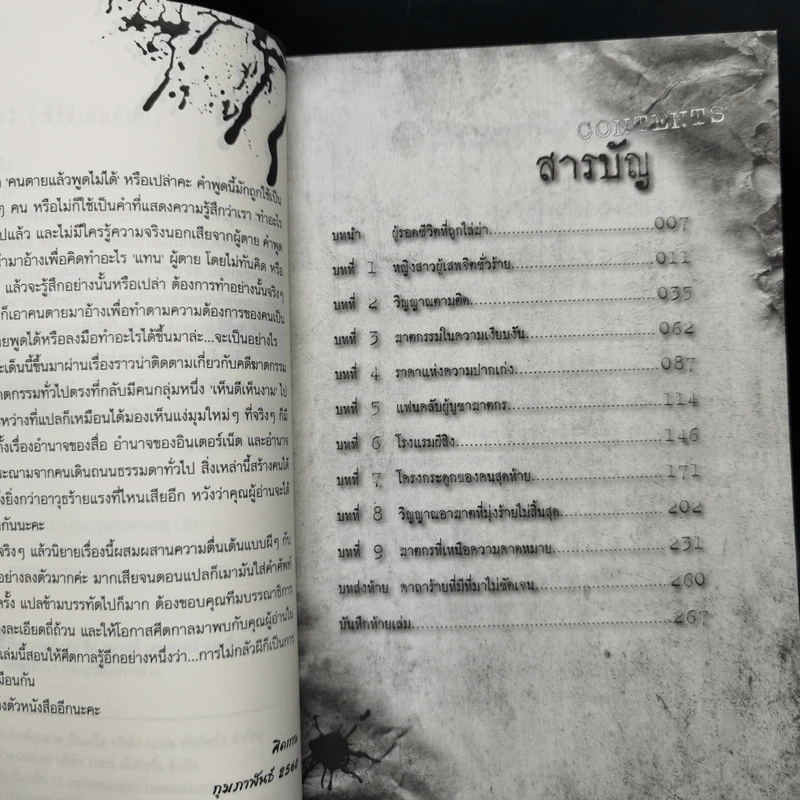 'คนตายแล้วพูดไม่ได้' หรือเปล่าคะ คำพูดนี้มักถูกใช้เป็น
ๆ คน หรือไม่ก็ใช้เป็นคำที่แสดงความรู้สึกว่าเรา 'ทำอะไร
ปแล้ว และไม่มีใครรู้ความจริงนอกเสียจากผู้ตาย คำพูด
มาอ้างเพื่อคิดทำอะไร 'แทน' ผู้ตาย โดยไม่ทันคิด หรือ
แล้วจะรู้สึกอย่างนั้นหรือเปล่า ต้องการทำอย่างนั้นจริงๆ
ก็เอาคนตายมาอ้างเพื่อทำตามความต้องการของคนเป็น
ยพูดได้หรือลงมือทำอะไรได้ขึ้นมาล่ะ...จะเป็นอย่างไร
ะเด็นนี้ขึ้นมาผ่านเรื่องราวน่าติดตามเกี่ยวกับคดีฆาตกรรม
าตกรรมทั่วไปตรงที่กลับมีคนกลุ่มหนึ่ง 'เห็นดีเห็นงาม' ไป
หว่างที่แปลก็เหมือนได้มองเห็นแง่มุมใหม่ๆ ที่จริงๆ ก็มี
ั้งเรื่องอำนาจของสื่อ อำนาจของอินเตอร์เน็ต และอำนาจ
ระณามจากคนเดินถนนธรรมดาทั่วไป สิ่งเหล่านี้สร้างคนได้
ยิ่งกว่าอาวุธร้ายแรงที่ไหนเสียอีก หวังว่าคุณผู้อ่านจะได้
กันนะคะ
จริงๆ แล้วนิยายเรื่องนี้ผสมผสานความตื่นเต้นแบบผีๆ กับ
อย่างลงตัวมากค่ะ มากเสียจนตอนแปลก็เมามันใส่คำศัพท์
ครั้ง แปลข้ามบรรทัดไปก็มาก ต้องขอบคุณทีมบรรณาธิการ
งละเอียดถี่ถ้วน และให้โอกาสศีตกาลมาพบกับคุณผู้อ่านใน
เล่มนี้สอนให้ศีตกาลรู้อีกอย่างหนึ่งว่า...การไม่กลัวผีก็เป็นการ
มือนกัน
งตัวหนังสืออีกนะคะ
ศีตกาล
กุมภาพันธ์ 2560
CONTENTS
สารบัญ
บทนำ ผู้รอดชีวิตที่ถูกไล่ฆ่า 007
บทที่ 1 หญิงสาวผู้เสพจิตชั่วร้าย 011
บทที่ 2 วิญญาณตามติด 035
บทที่ 3 ฆาตกรรมในความเงียบงัน 062
บทที่ 4 ราคาแห่งความปากเก่ง 087
บทที่ 5 แฟนคลับผู้บูชาฆาตกร 114
บทที่ 6 โรงแรมผีสิง 146
บทที่ 7 โครงกระดูกของคนสุดท้าย 171
บทที่ 8 วิญญาณอาฆาตที่มุ่งร้ายไม่สิ้นสุด 202
บทที่ 9 ฆาตกรที่เหนือความคาดหมาย 231
บทส่งท้าย คาถาร้ายที่มีที่มาไม่ชัดเจน 260
บันทึกท้ายเล่ม 267